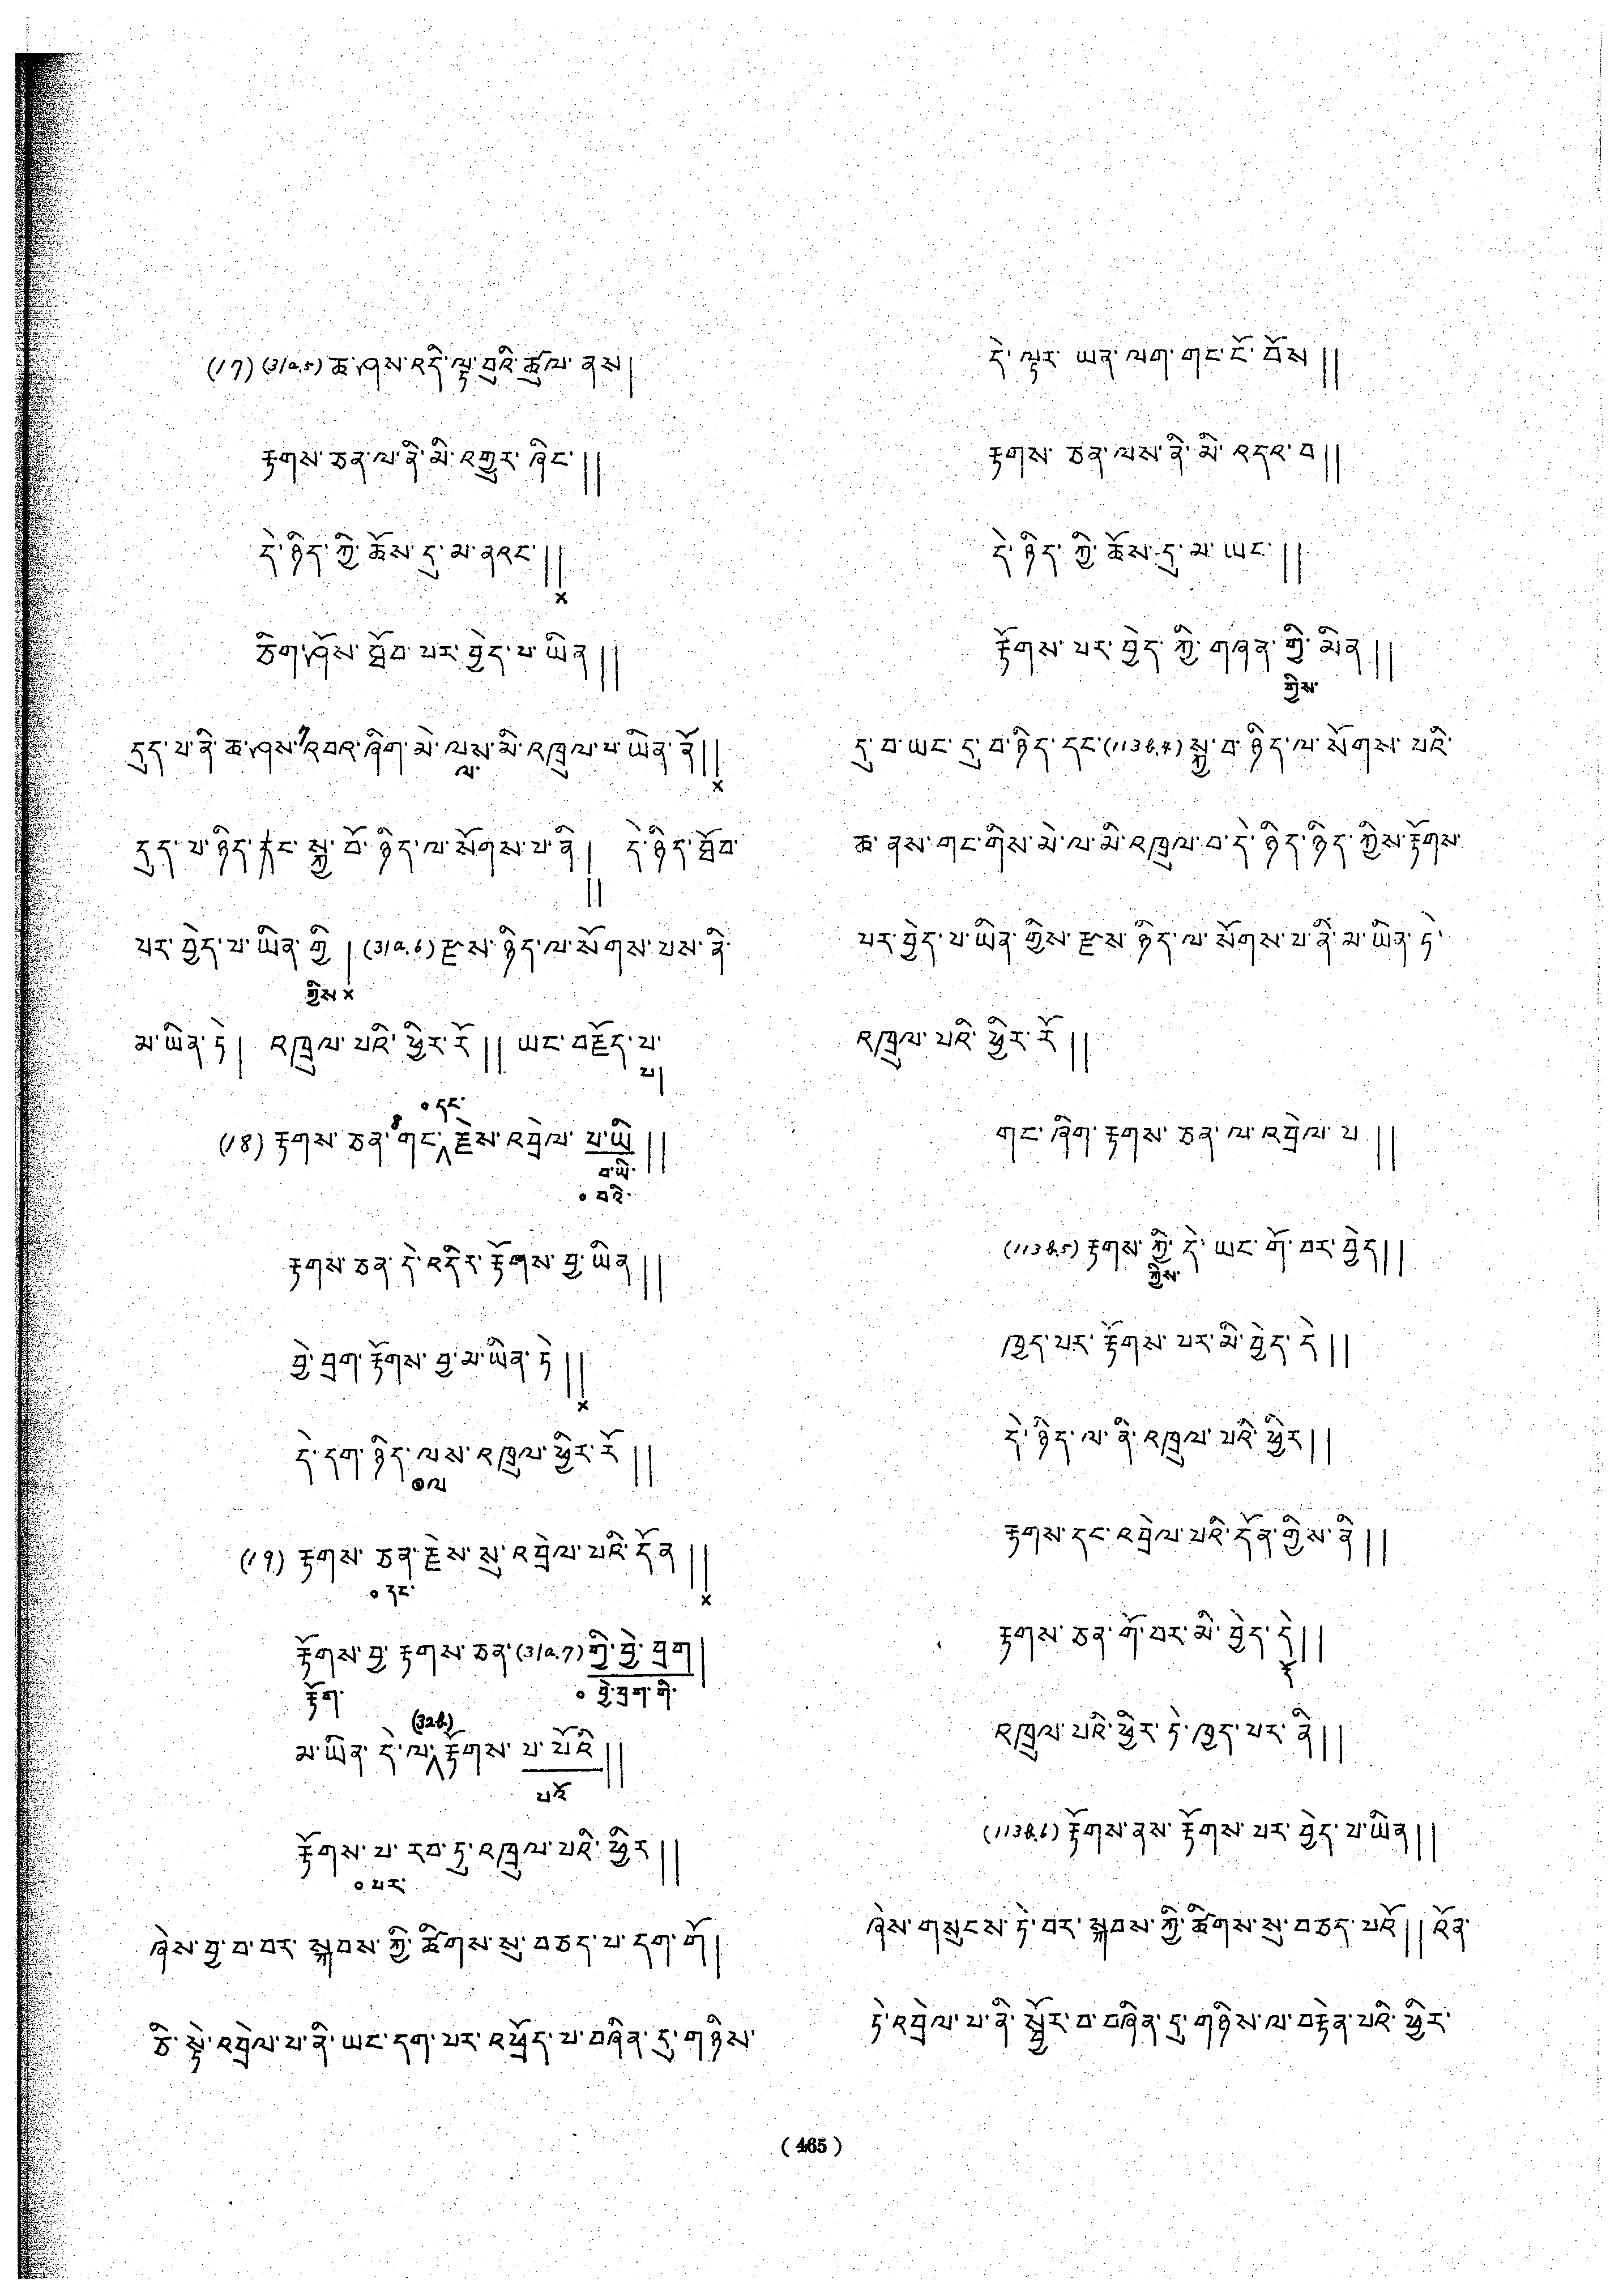 (17) (31a.5) ཆ་ཤས་འདི་ལྟ་བུའི་ཚུལ་ནས།
རྟགས་ཅན་ལ་ནི་མི་འགྱུར་ཞིང་༎
དེ་ཉིད་ཀྱི་ཆོས་དུ་མ་ནའང་༎
×
ཅིག་ཤོས་གྲོབ་པར་བྱེད་པ་ཡིན༎
དུད་པ་ནི་ཆ་ཤས་འབའ་ཞིག་མེ་ལས་མི་འཁྲུལ་པ་ཡིན་ནོ༎
ལ་ ×
དུད་པ་ཉིད་དང་སྐྱ་བོ་ཉིད་ལ་སོགས་པ་ནི། དེ་ཉིད་གྲོབ་
༎
པར་བྱེད་པ་ཡིན་གྱི །(31a.6) རྫས་ཉིད་ལ་སོགས་པས་ནི་
གྱིས ×
མ་ཡིན་ཏེ། འཁྲུལ་པའི་ཕྱིར་རོ༎ ཡང་བརྗོད་པ་
པ།
༠དང་
(18) རྟགས་ཅན་གང་རྗེས་འབྲེལ་པ་ཡི༎
བ་ཡི་
༠བའི་
རྟགས་ཅན་དེ་འདིར་རྟོགས་བྱ་ཡིན༎
བྱེ་བྲག་རྟོགས་བྱ་མ་ཡིན་ཏེ༎
×
དེ་དག་ཉིད་ལས་འཁྲུལ་ཕྱིར་རོ༎
༠ལ
(19) རྟགས་ཅན་རྗེས་སུ་འབྲེལ་པའི་དོན༎
༠དང་ ×
རྟོགས་བྱ་རྟགས་ཅན་(31a.7)ཀྱི་བྱེ་བྲག།
རྟོག་ ༠བྱེ་བྲག་གི་
(32b.)
མ་ཡིན་དེ་ལ་རྟོགས་པ་པོའི༎
པའོ
རྟོགས་པ་རབ་ཏུ་འཁྲུལ་པའི་ཕྱིར༎
༠པར་
ཞེས་བྱ་བ་བར་སྐབས་ཀྱི་ཚིགས་སུ་བཅད་པ་དག་གོ།
ཅི་སྟེ་འབྲེལ་པ་ནི་ཡང་དག་པར་འཕྲོད་པ་བཞིན་དུ་གཉིས་
དེ་ལྟར་ ཡན་ལག་གང་ངོ་བོས༎
རྟགས་ཅན་ལས་ནི་མི་འདའ་བ༎
དེ་ཉིད་ཀྱི་ཆོས་དུ་མ་ཡང་༎
རྟོགས་པར་བྱེད་ཀྱི་གཞན་གྱི་མིན༎
གྱིས་
དུ་བ་ཡང་དུ་བ་ཉིད་དང་(113b.4) སྐྱ་བ་ཉིད་ལ་སོགས་པའི་
ཆ་ནས་གང་གིས་མེ་ལ་མི་འཁྲུལ་བ་དེ་ཉིད་ཉིད་ཀྱིས་རྟོགས་
པར་བྱེད་པ་ཡིན་གྱིས་རྫས་ཉིད་ལ་སོགས་པ་ནི་མ་ཡིན་ཏེ་
འཁྲུལ་པའི་ཕྱིར་རོ༎
གང་ཞིག་རྟགས་ཅན་ལ་འབྲེལ་པ༎
(113b.5) རྟགས་ཀྱི་དེ་ཡང་གོ་བར་བྱེད༎
ཀྱིས་
ཁྱད་པར་རྟོགས་པར་མི་བྱེད་དེ༎
དེ་ཉིད་ལ་ནི་འཁྲུལ་པའི་ཕྱིར༎
རྟགས་དང་འབྲེལ་པའི་དོན་གྱིས་ནི༎
རྟགས་ཅན་གོ་བར་མི་བྱེད་དེ༎
འཁྲུལ་པའི་ཕྱིར་ཏེ་ཁྱད་པར་ནི༎
(113b.6) རྟོགས་ནས་རྟོགས་པར་བྱེད་པ་ཡིན༎
ཞེས་གསུངས་ཏེ་བར་སྐབས་ཀྱི་ཚིགས་སུ་བཅད་པའོ༎ འོན་
ཏེ་འབྲེལ་པ་ནི་སྦྱོར་བ་བཞིན་དུ་གཉིས་ལ་བརྟེན་པའི་ཕྱིར་
(465)